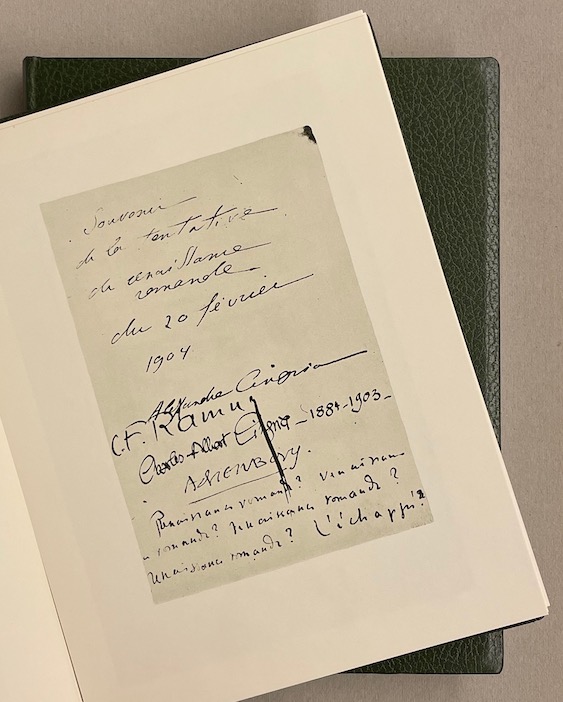 Souvenir
de la tentative
de renaissance
romande
du 20 février
1904
Alexandre Cingria
C.F. Ramuz
Charles-Albert Cingria - 1884-1903-
Renaissance romande? renaissance
romande? renaissance romande?
renaissance romande? L'échappé?